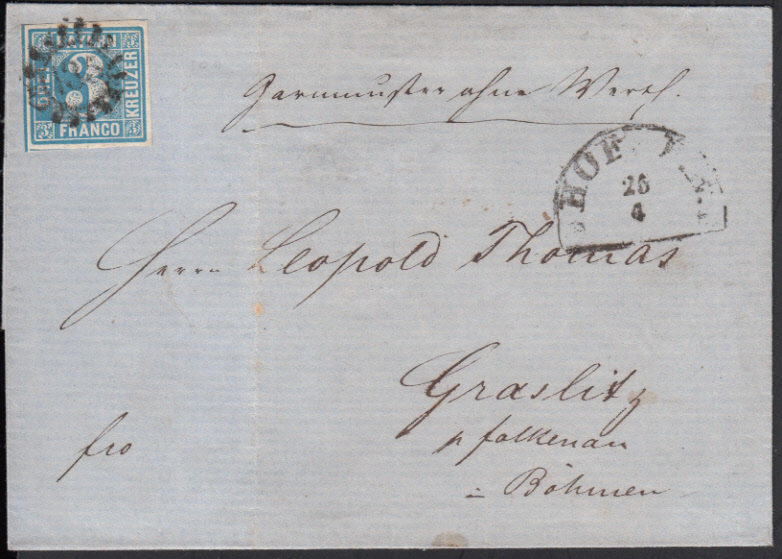 BAYERN
3
KREUZER
FRANCO
Garnmuster ohne Werth.
HOF
26
4
Herrn Leopold Thomas
Graslitz
p falkenau
fro
in Böhmen